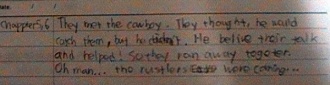 Date. / /
Chapter5,6 They met the cowboy. They thought, he would
catch them, but he didn't. He belive their talk
and helped! So they ran away togeter.
Oh man... the rustlers were coming...